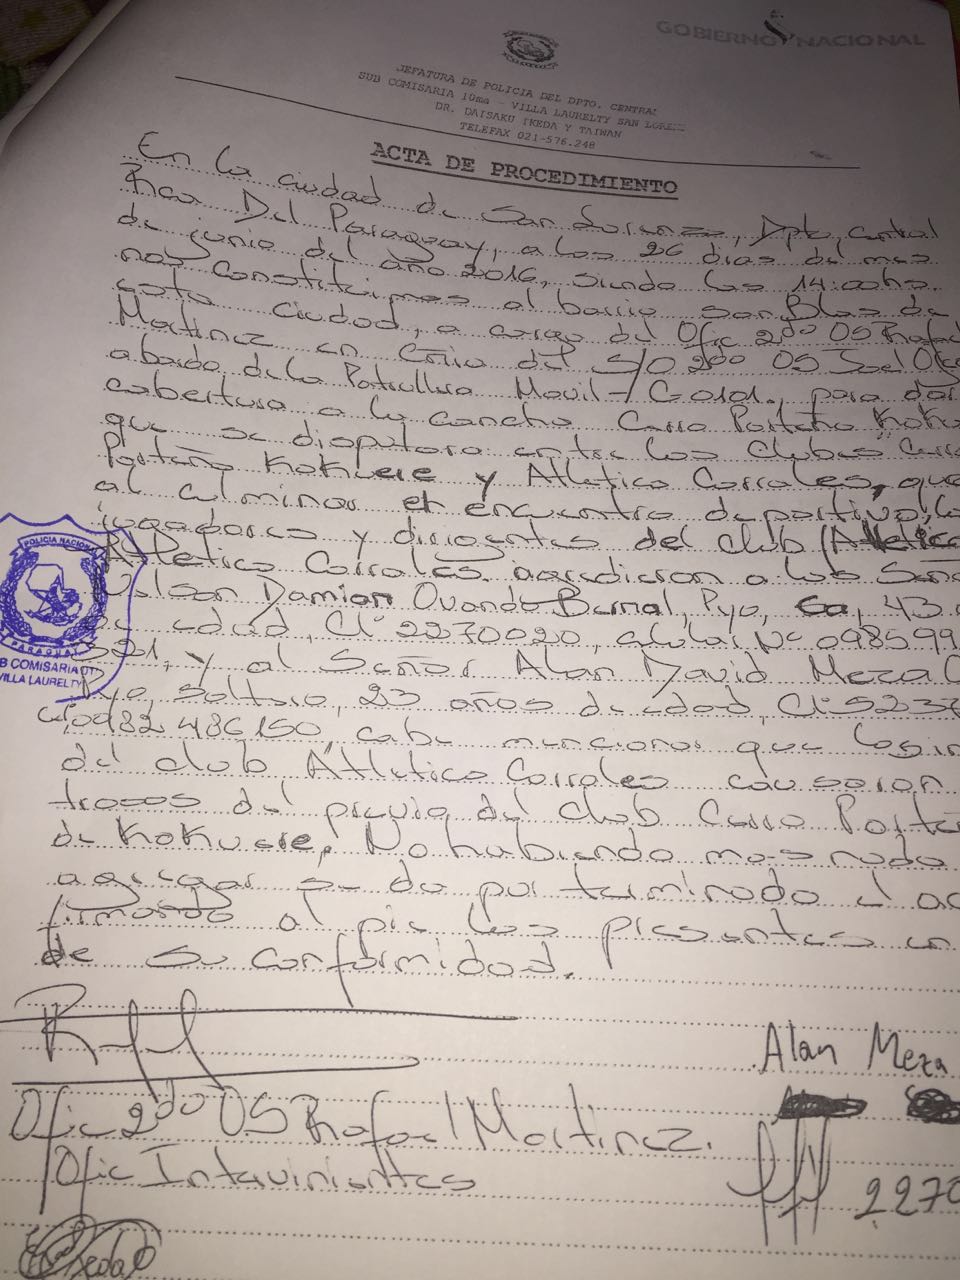 GOBIERNO NACIONAL
JEFATURA DE POLICIA DEL DPTO. CENTRAL
SUB COMISARIA 10ma - VILLA LAURELTY SAN LORENZ
DR. DAISAKU IKEDA Y TAIWAN
TELEFAX 021-576.248
ACTA DE PROCEDIMIENTO
En la ciudad de San Lorenzo, Dpto, central
Rca. Del Paraguay, a los 26 dias del mes
de junio del año 2016, siendo las 14:00hs.
nos constituimos al barrio San Blas de
esta Ciudad, a cargo del Ofic 2do OS Rafael
Martinez en Cñia del S/O 2do OS Joel
abordo de la Patrullera Movil para dar
cobertura a la cancha Cerro Porteño Koku
que se disputara entre los Clubes Cerro
Porteño Kokuere y Atletico Corrales, que
al culminar el encuentro deportivo, los
jugadores y dirigentes del club Atletico
Atletico Corrales agredieron a los Seño
Damian Ovando Bernal, Pyo, Ca, 43
de edad, CI° 2270020, celular N° 098599
521, y al Señor Alan David Meza
Pyo, Soltero, 23 años de edad, CI° 523
0982.486150, cabe mencionar que los
del club Atletico Corrales causaron
del previo del club Cerro Porte
de Kokuere, No habiendo mas nada
agregar se da por terminado el ac
firmando al pie los presentes en
de su conformidad.
POLICIA NACIONAL
PARAGUAY
B COMISARIA
VILLA LAURELTY
Alan Meza
Ofic 2do OS Rafael Martinez.
Ofic Intervinientes
2270